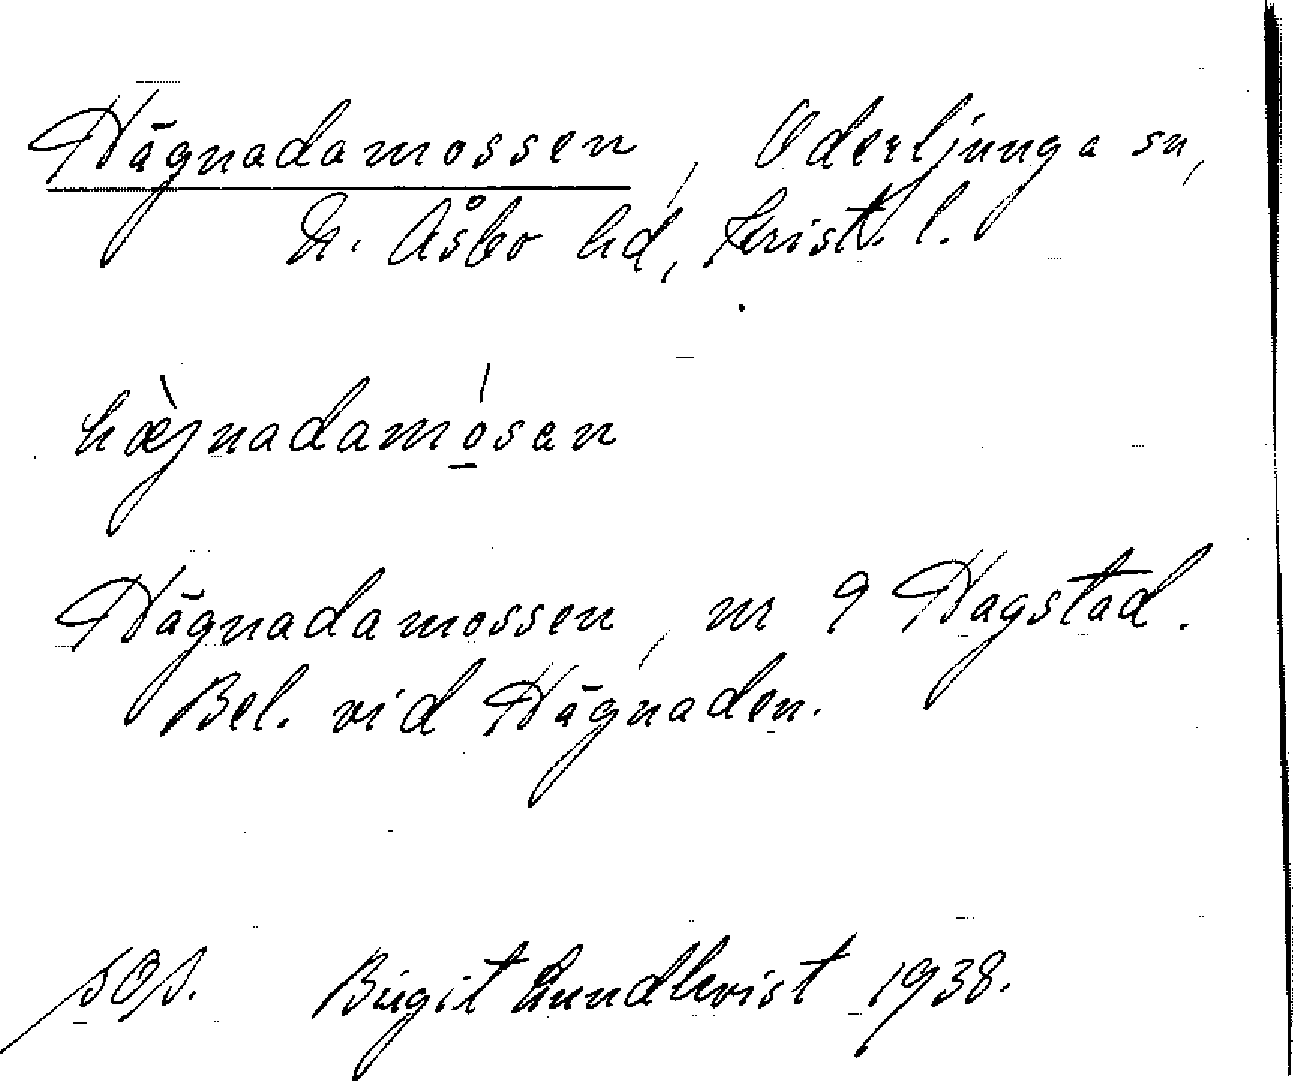 Hägnadamossen, Oderljunga sn,
N. Åsbo hd, Krist. l.
hæ̀jnadamó̠san
Hägnadamossen, m 9 Hagstad.
Bel. vid Hägnaden.
sOs. Birgit Lundkvist 1938.